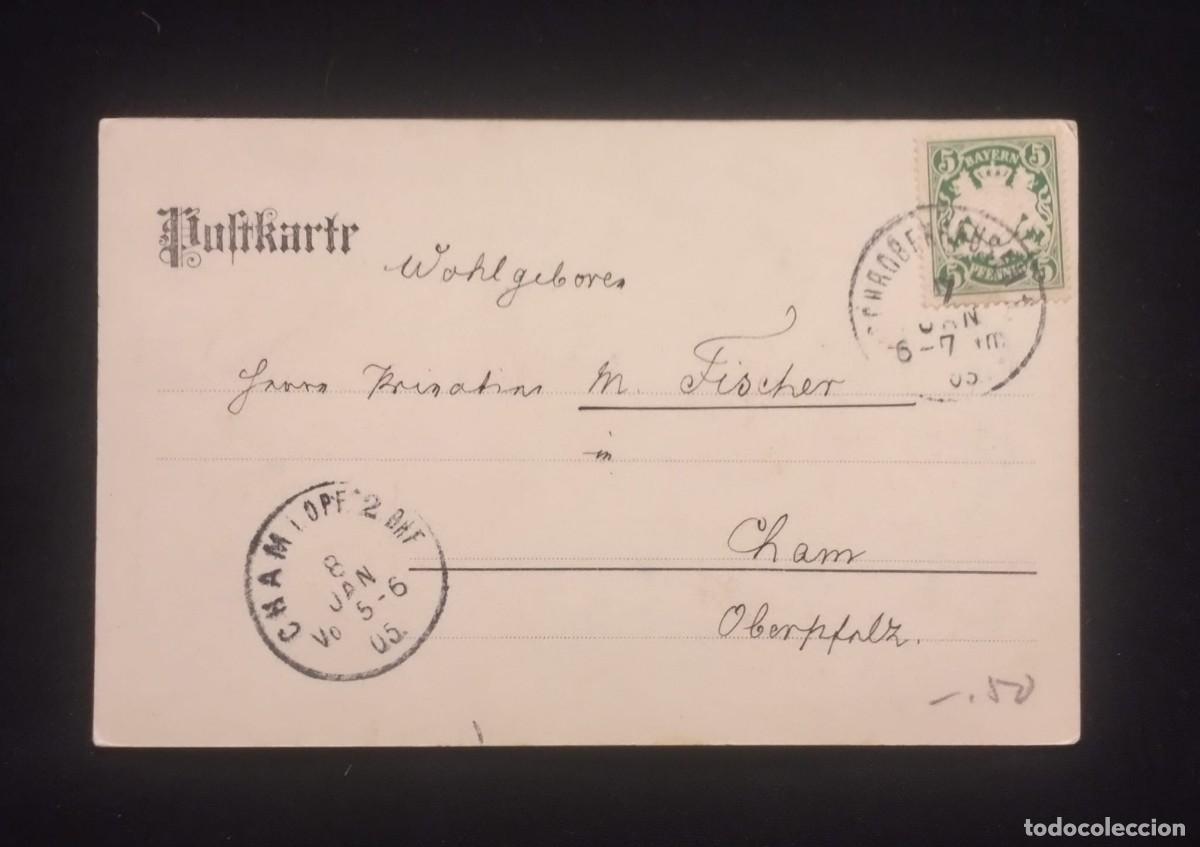 Postkarte
5 BAYERN 5
5 PFENNIG 5
SCHROBENHAUSEN
7
JAN
6-7 Nm
05.
Wohlgeboren
Herrn Privatier M. Fischer
in
Cham
Oberpfalz.
CHAM (OPF.) 2 BHF
8
JAN
Vo 5-6
05.
-.50
todocoleccion